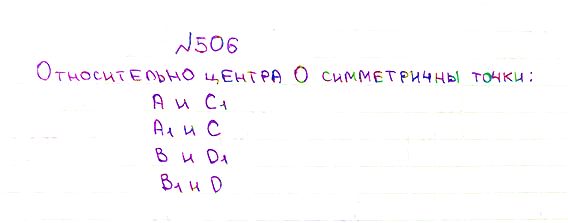 №506
Относительно центра О симметричны точки:
А и С₁
А₁ и С
В и D₁
В₁ и D